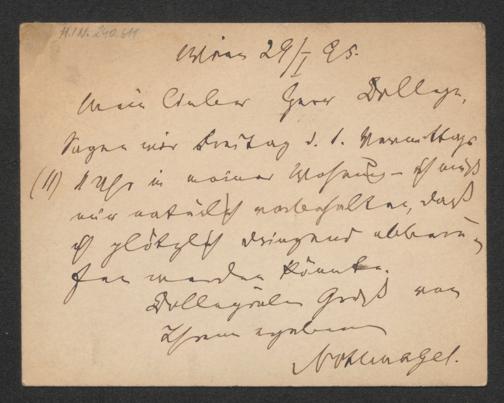 H.I.N. 240.611
Wien 29/I 95.
Mein lieber Herr College,
Sagen wir Freitag d. 1. Vormittags
(11) 11 Uhr in meiner Wohnung – ich muß
mir natürlich vorbehalten, daß
ich plötzlich dringend abberu-
fen werden könnte.
Collegialen Gruß von
Ihrem ergebenen
Nothnagel.